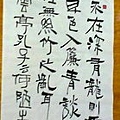 不在深有龍則
色入簾青談
絲竹之亂耳
雲亭孔子云何陋